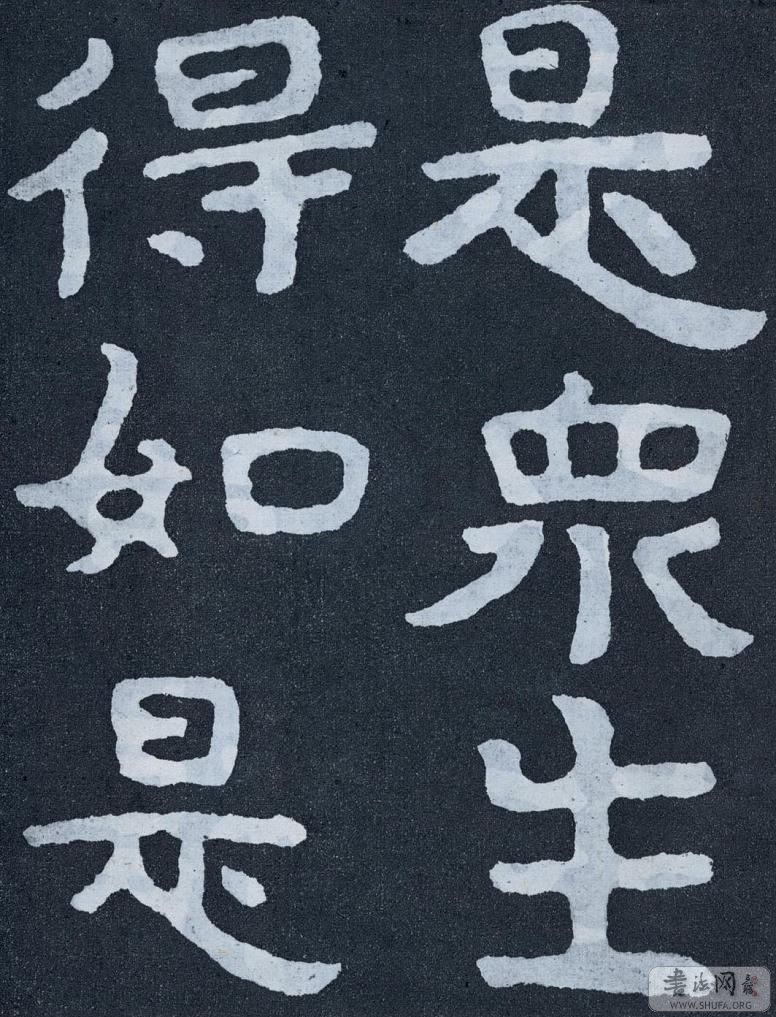 是眾生
得如是
書法网
WWW.SHUFA.ORG